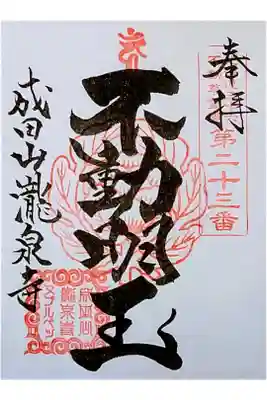 奉拝
第二十三番
不動明王
成田山瀧泉寺